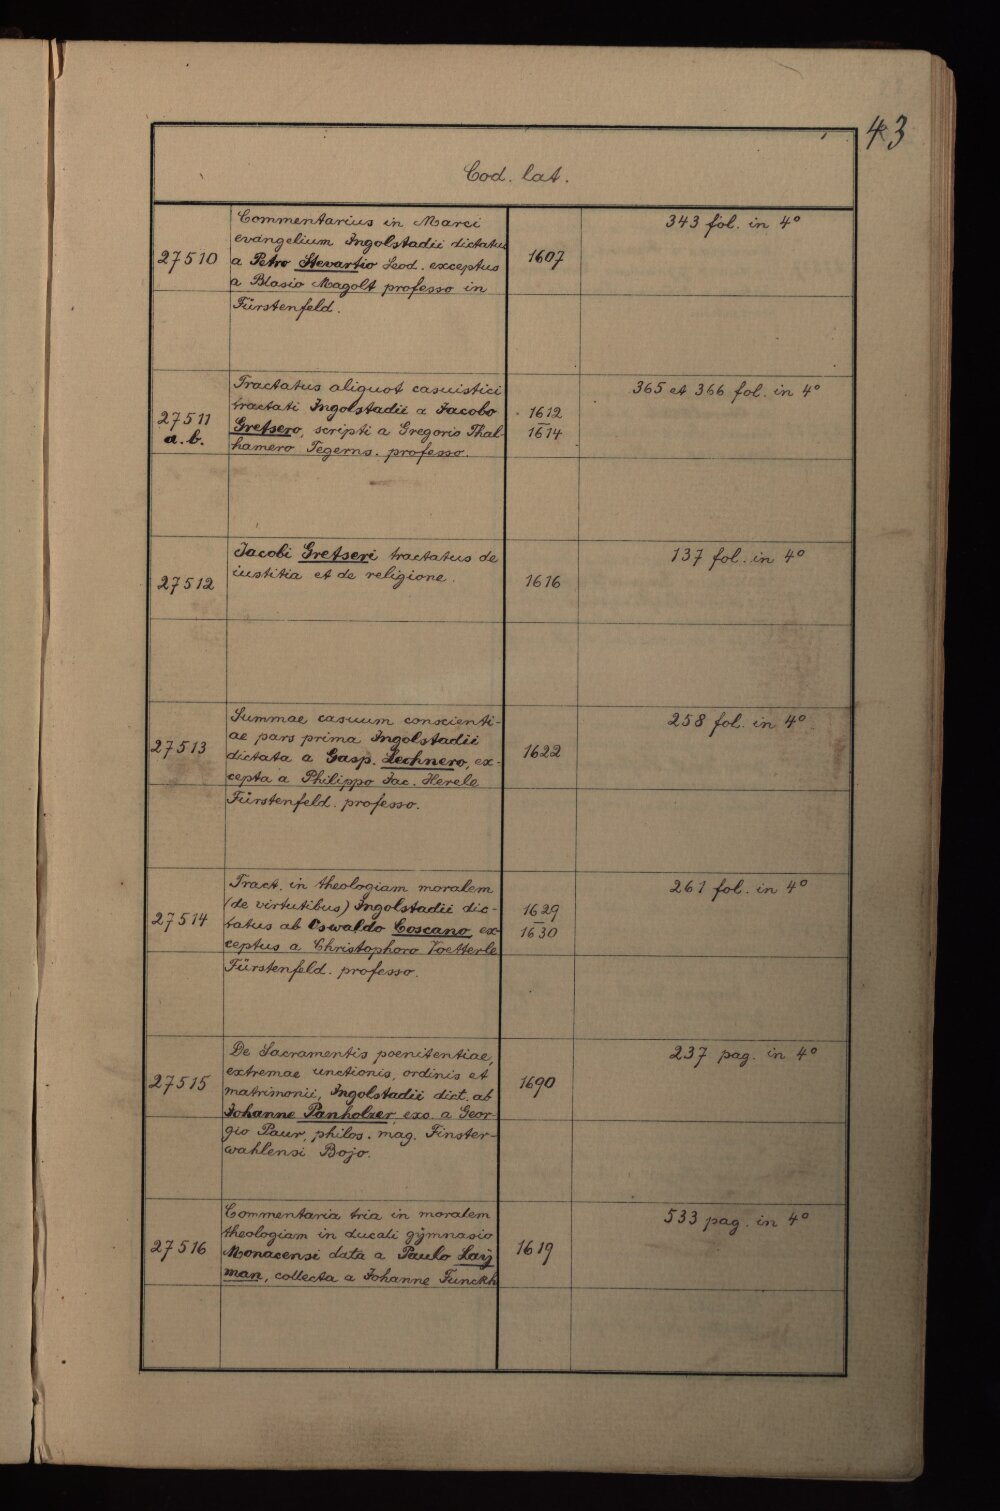 43
Cod. lat.
27510
Commentarius in Marci
evangelium Ingolstadii dictatus
a Petro Stevartio Leod. exceptus
a Blasio Magolt professo in
Fürstenfeld.
1607
343 fol. in 4°
27511
a. b.
Tractatus aliquot casuistici
tractati Ingolstadii a Jacobo
Gretsero, scripti a Gregorio Thal-
hamero Tegerns. professo.
1612
–
1614
365 et 366 fol. in 4°
27512
Jacobi Gretseri tractatus de
iustitia et de religione.
1616
137 fol. in 4°
27513
Summae casuum conscienti-
ae pars prima Ingolstadii
dictata a Gasp. Lechnero, ex-
cepta a Philippo Jac. Herele
Fürstenfeld. professo.
1622
258 fol. in 4°
27514
Tract. in theologiam moralem
(de virtutibus) Ingolstadii dic-
tatus ab Oswaldo Coscano, ex-
ceptus a Christophoro Voetterle
Fürstenfeld. professo.
1629
–
1630
261 fol. in 4°
27515
De Sacramentis poenitentiae,
extremae unctionis, ordinis et
matrimonii, Ingolstadii dict. ab
Johanne Panholzer, exc. a Geor-
gio Paur, philos. mag. Finster-
wahlensi Bojo.
1690
237 pag. in 4°
27516
Commentaria tria in moralem
theologiam in ducali gÿmnasio
Monacensi data a Paulo Laÿ
man, collecta a Johanne Funckh
1619
533 pag. in 4°